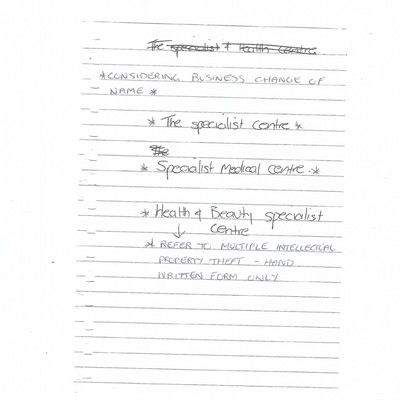 The specialist & Health centre
*CONSIDERING BUSINESS CHANGE OF
NAME *
* The specialist centre *
The
* Specialist Medical centre *
* Health & Beauty specialist
centre
* REFER TO MULTIPLE INTELLECTUAL
PROPERTY THEFT - HAND
WRITTEN FORM ONLY